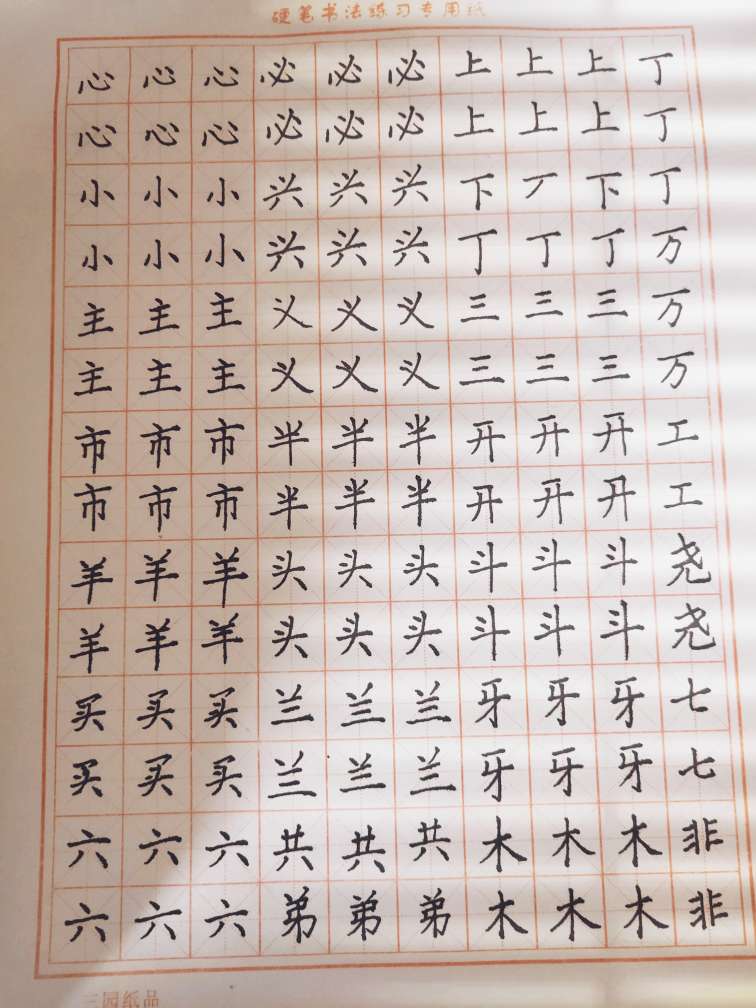 硬笔书法练习专用纸
心心心必必必上上上丁
心心心必必必上上上丁
小小小兴兴兴下丆下丁
小小小兴兴兴丁丁丁万
主主主义义义三三三万
主主主义义义三三三万
市市市半半半开开开工
市市市半半半开开开工
羊羊羊头头头斗斗斗尧
羊羊羊头头头斗斗斗尧
买买买兰兰兰牙牙牙七
买买买兰兰兰牙牙牙七
六六六共共共木木木非
六六六弟弟弟木木木非
三园纸品